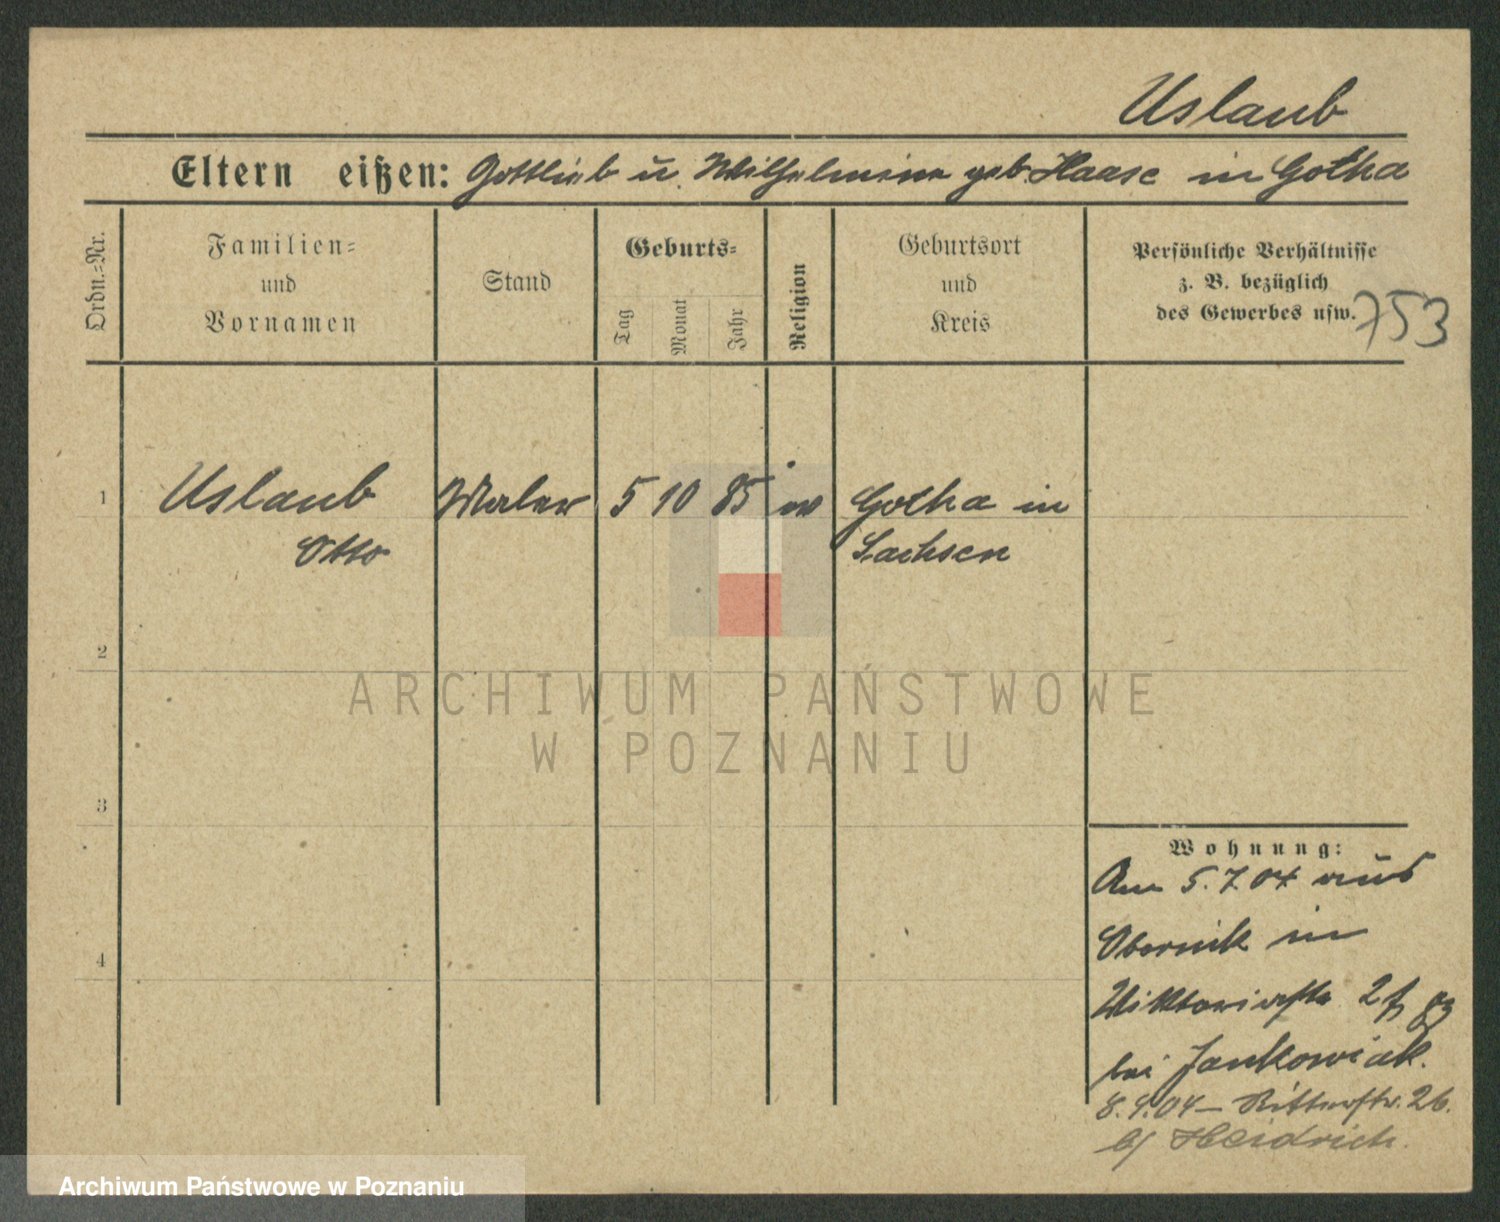 Uslaub
Eltern eißen: Gottlieb u. Wilhelmine geb. Haase in Gotha
Ordn.=Nr.
Familien=
und
Vornamen
Stand
Geburts=
Tag
Monat
Jahr
Religion
Geburtsort
und
Kreis
Persönliche Verhältnisse
z. B. bezüglich
des Gewerbes usw.
753
1
Uslaub
Otto
Maler
5
10
85
ev
Gotha in
Sachsen
2
3
4
ARCHIWUM PAŃSTWOWE
W POZNANIU
Wohnung:
Am 5.7.04 aus
Obornik in
Wiktoriastr 2
bei Jankowiak.
8.9.04 — Ritterstr. 26.
b/ Heidrich.
Archiwum Państwowe w Poznaniu